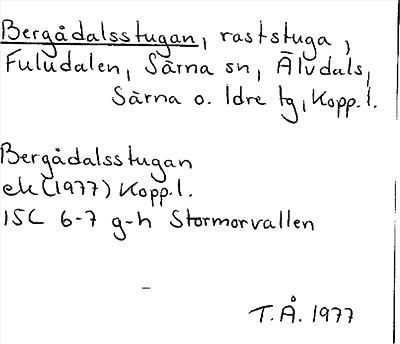 Bergådalsstugan, raststuga,
Fuludalen, Särna sn, Älvdals,
Särna o. Idre tg, Kopp. l.
Bergådalsstugan
ek (1977) Kopp. l.
15C 6-7 g-h Stormorvallen
T.Å. 1977